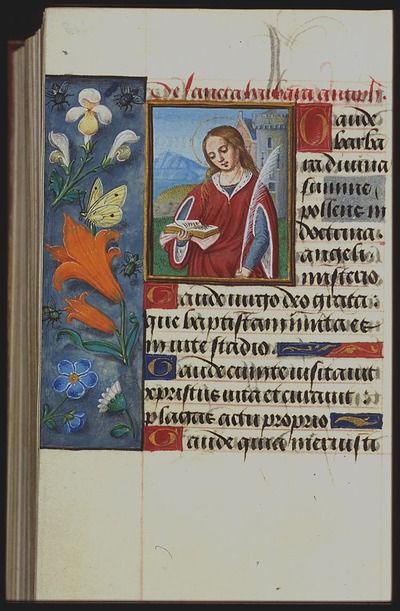 De sancta barbara antiph.
Gaude
barba
ra divina
summe
pollens in
doctrina
angeli
misterio
Gaude virgo deo grata
que baptistam
in vite stadio
Gaude cum te visitavit
xpristus vita et curavit
plagas actu proprio
Gaude quia meruisti